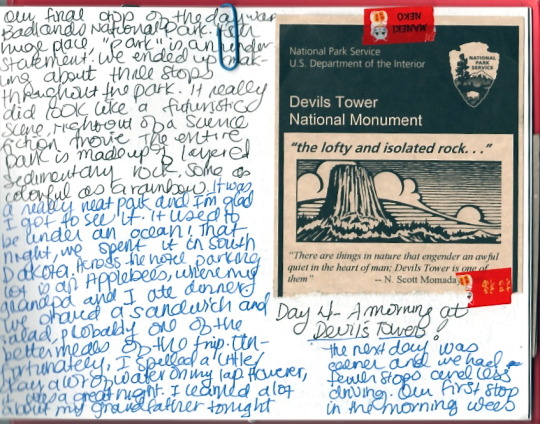 Our final stop of the day was
Badlands National Park. It's a
huge place, "park" is an under
statement. We ended up mak-
ing about three stops
throughout the park. It really
did look like a futuristic
scene, right out of a science
fiction movie. The entire
park is made up of layered
sedimentary rock. Some as
colorful as a rainbow. It was
a really neat park and I'm glad
I got to see it. It used to
be under an ocean! That
night, we spent it in South
Dakota. Across the hotel parking
lot is an Applebees, where my
grandpa and I ate dinner,
we shared a sandwich and
salad, probably one of the
better meals of the trip. Un-
fortunately, I spilled a little
lot of water on my lap. However,
it was a great night. I learned a lot
about my grandfather tonight
MANEKI
NEKO
National Park Service
U.S. Department of the Interior
NATIONAL
PARK
SERVICE
Devils Tower
National Monument
"the lofty and isolated rock. . ."
"There are things in nature that engender an awful
quiet in the heart of man; Devils Tower is one of
them"
-- N. Scott Momada
Day 4- A morning at
Devil's Tower!
The next day was
easier and we had
fewer stops and less
driving. Our first stop
in the morning was